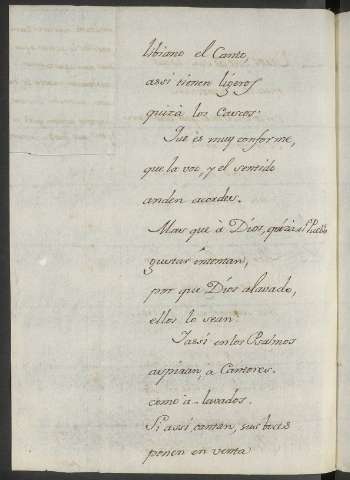 libiano el Canto,
assi tienen ligeros
quizà los Cascos.
Jue es muy conforme,
que la voz, y el sentido
anden acordes.
Mas que à Dios, quizà al Pueblo
gustar intentan,
por que Dios alavado,
ellos lo sean.
Jassi en los Psalmos
aspiran, a Cantores.
como a-lavados.
Si assi cantan, sus voces
ponen en venta